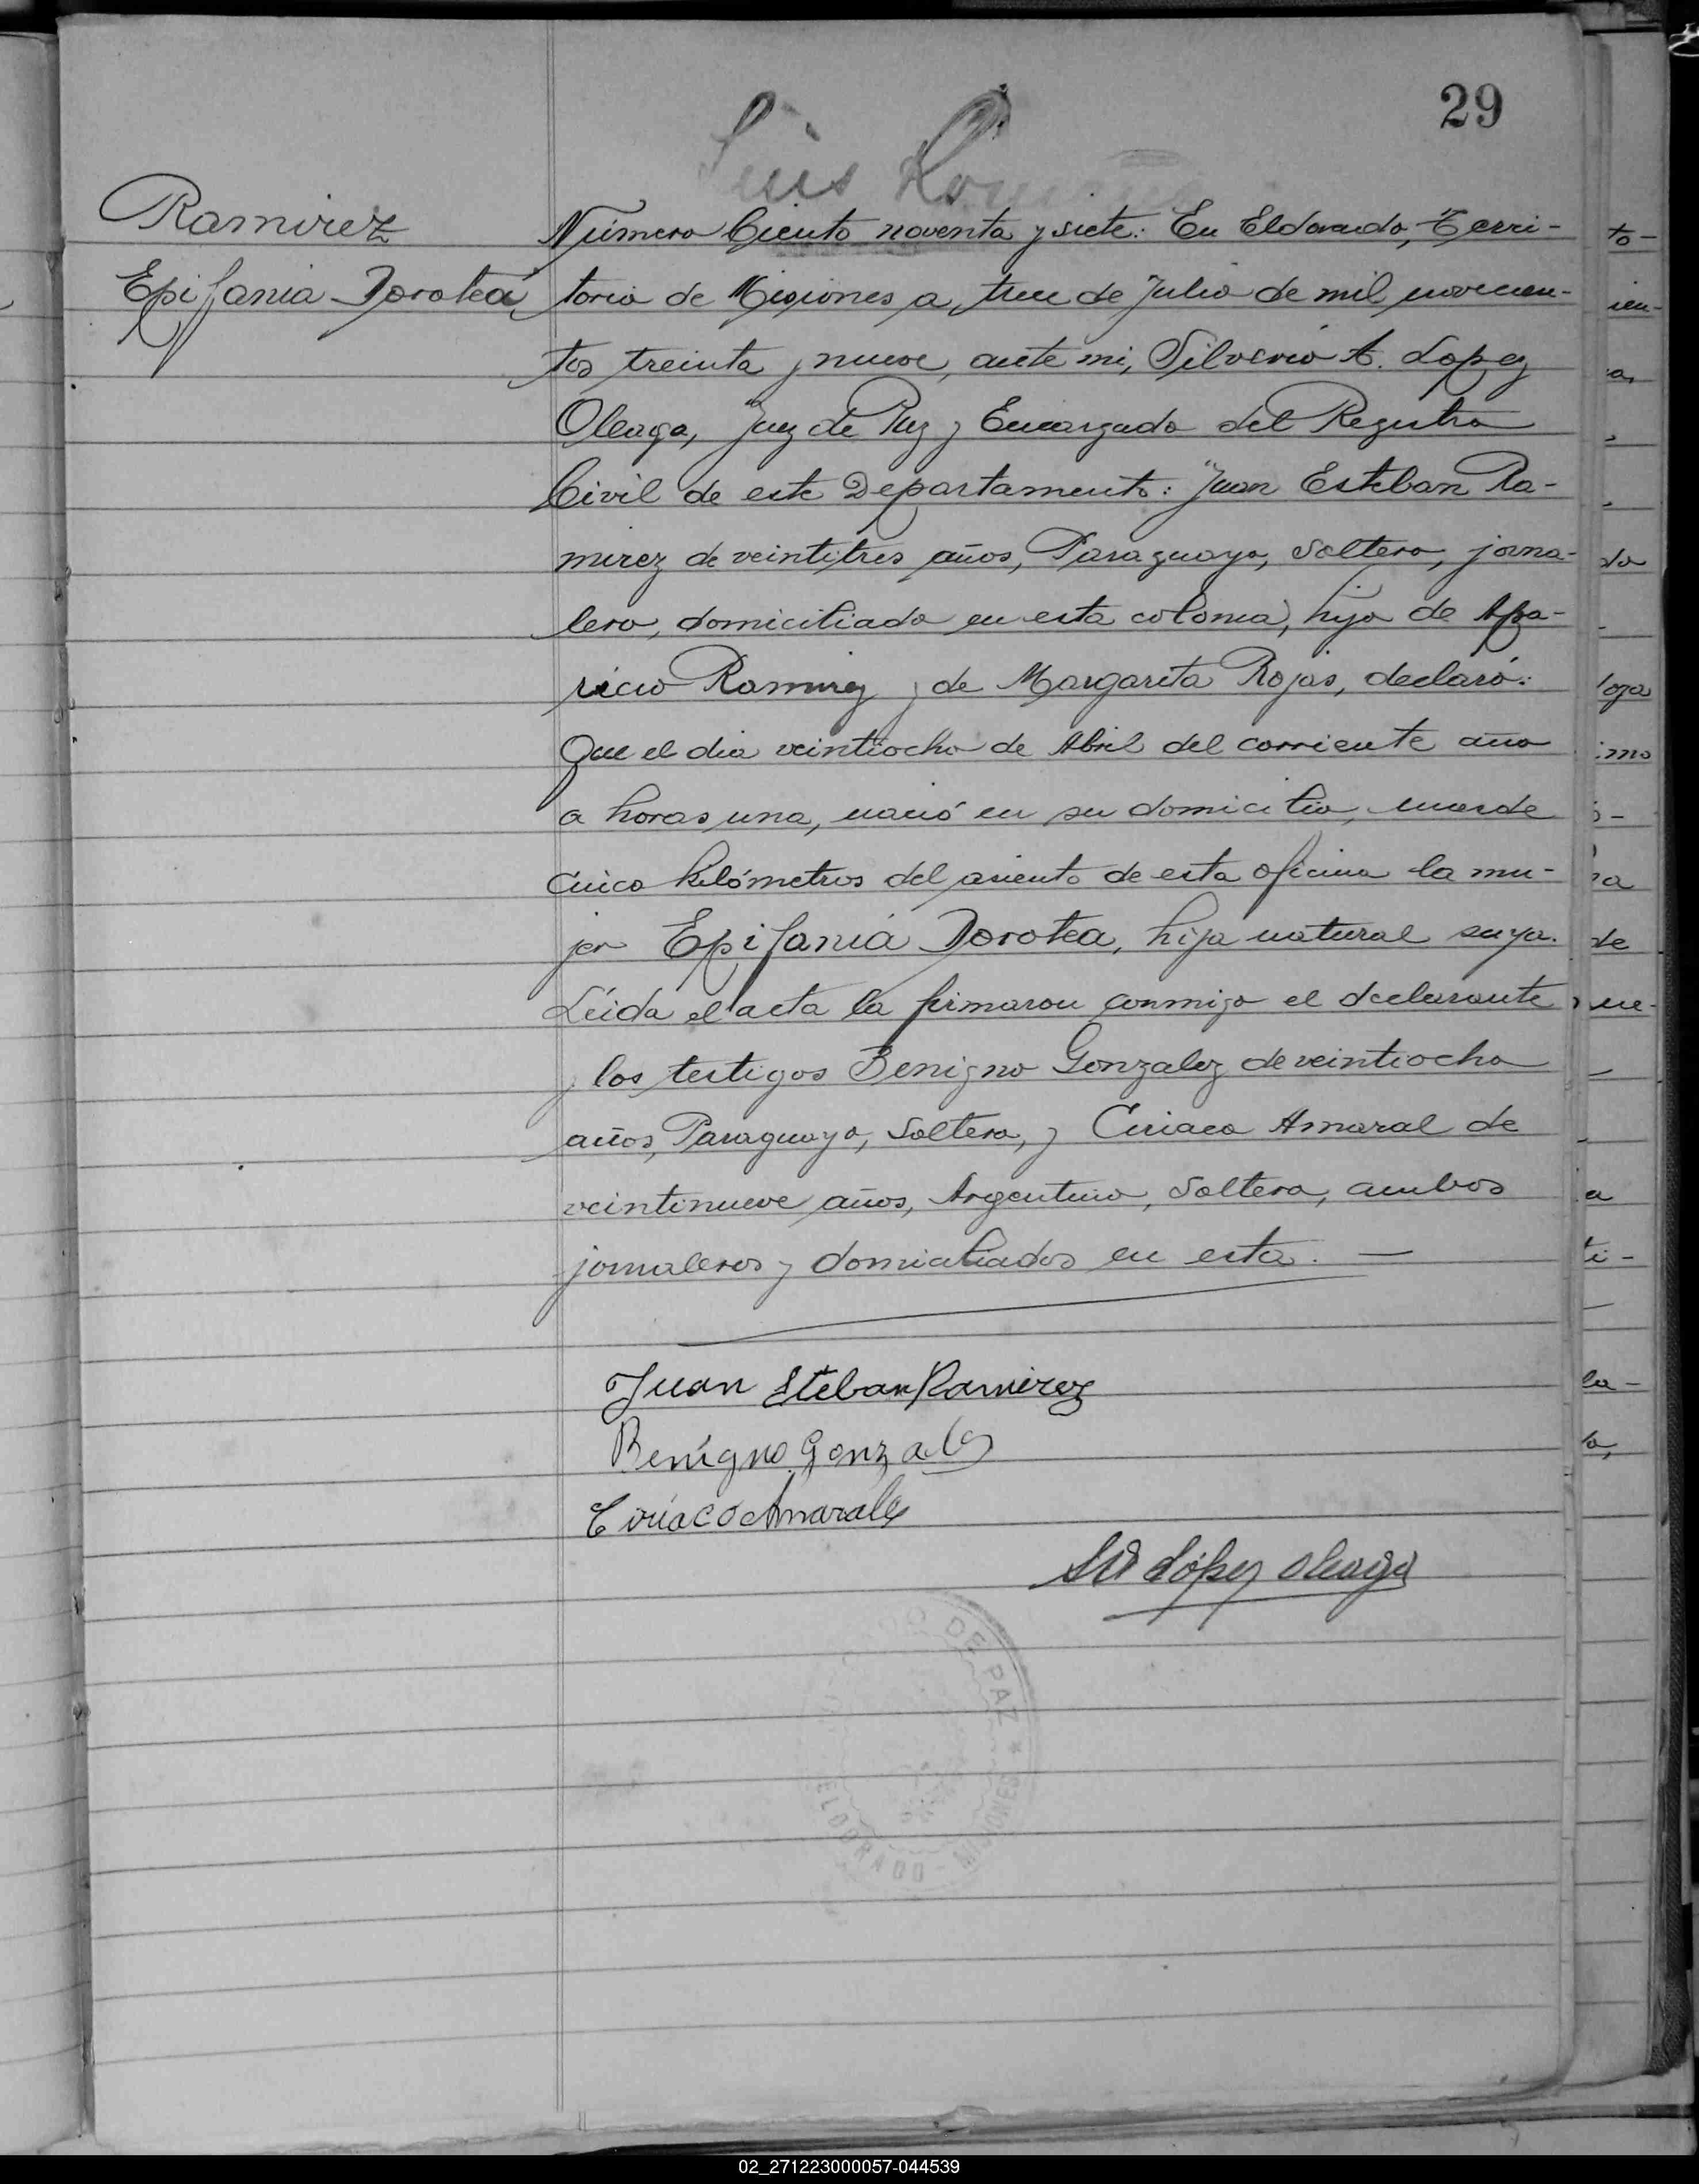 29
Luis
Ramirez
Epifania Dorotea
Número Ciento noventa y siete: En Eldorado, Terri-
torio de Misiones a trece de Julio de mil novecien-
tos treinta y nueve, ante mi, Silverio A. Lopez
Oleaga, Juez de Paz y Encargado del Registro
Civil de este Departamento: Juan Esteban Ra-
mirez de veintitres años, Paraguayo, Soltero, jorna-
lero, domiciliado en esta colonia, hijo de Apa-
ricio Ramirez y de Margarita Rojas, declaró:
Que el dia veintiocho de Abril del corriente año
a horas una, nació en su domicilio, mas de
cinco kilómetros del asiento de esta oficina la mu-
jer Epifania Dorotea, hija natural suya.
Leida el acta la firmaron conmigo el declarante
y los testigos Benigno Gonzalez de veintiocho
años, Paraguayo, Soltero, y Ciriaco Amaral de
veintinueve años, Argentino, Soltero, ambos
jornaleros y domiciliados en esta. —
Juan Esteban Ramirez
Benigno Gonzalez
Ciriaco Amarale
López Oleaga
DE PAZ * ELDORADO - MISIONES
02_271223000057-044539